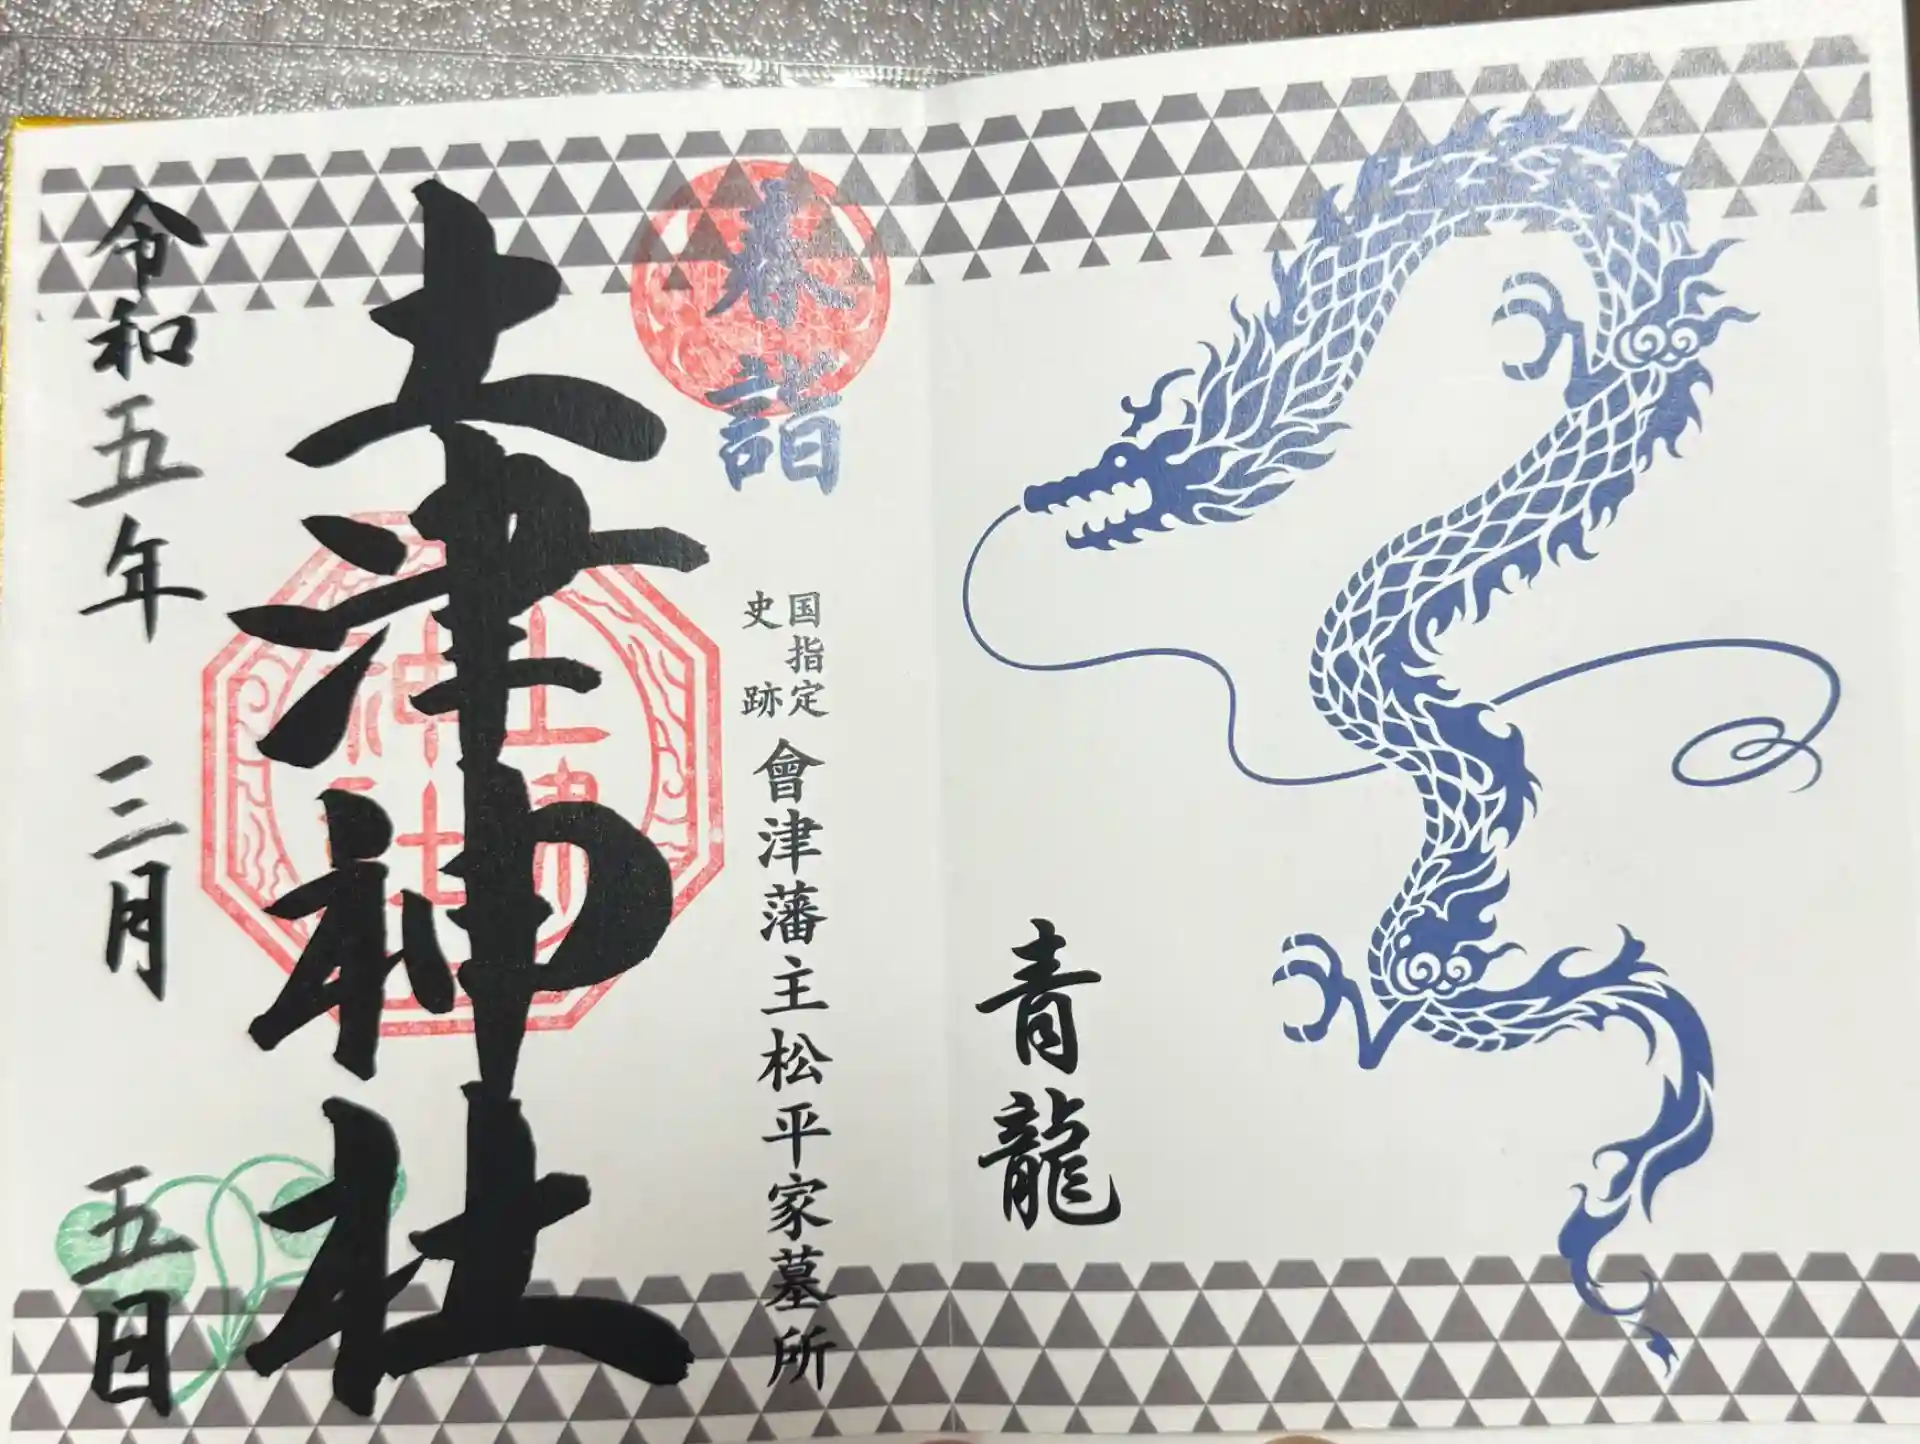 青龍
春詣
国指定
史跡
會津藩主松平家墓所
土津神社
土津
神社
令和五年 三月 五日